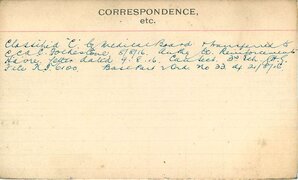 CORRESPONDENCE,
etc.
Classified "C" by Medical Board & transferred to
C.C.A.C. Folkestone 5/8/16. Authy O. Reinforcements
letter dated 9.8.16. Can. Sec. 3rd Ech.
File No. Base Part Ord. No 33 21/8/16